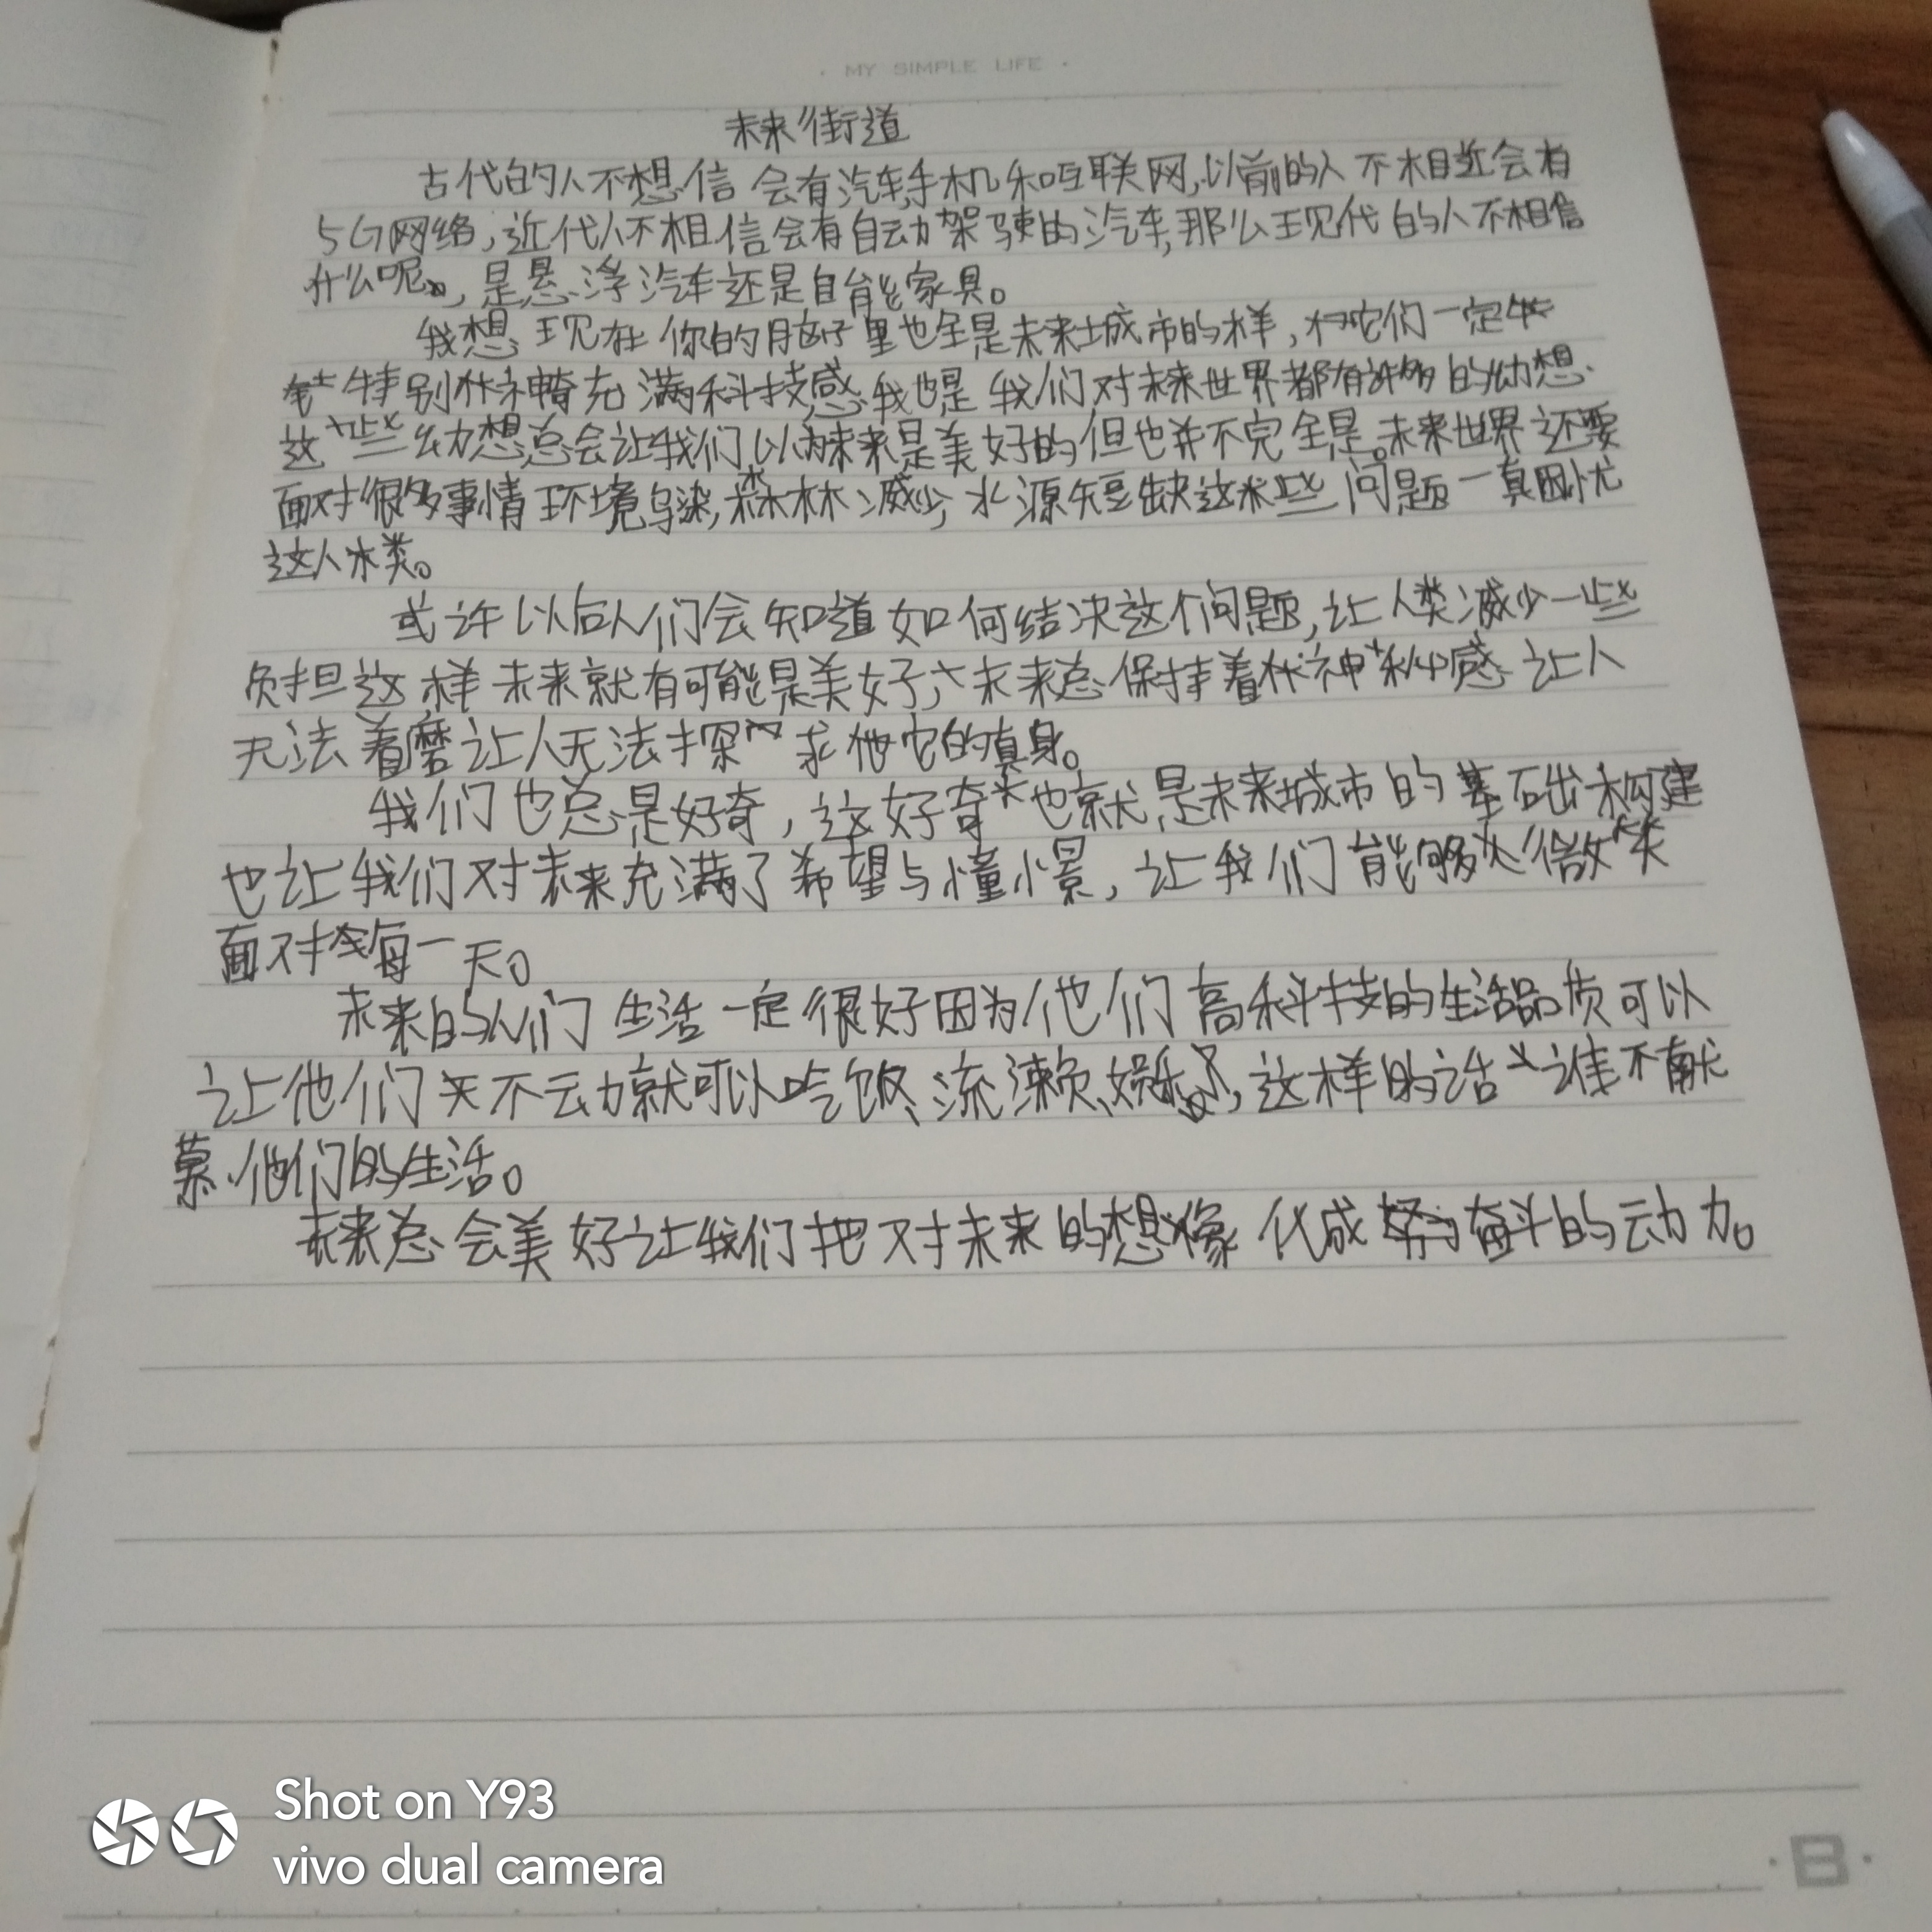 · MY SIMPLE LIFE ·
未来街道
古代的人不想信会有汽车,手机和互联网,以前的人不相近会有
5G网络,近代人不相信会有自动架驶的汽车,那么现代的人不相信
什么呢,是悬浮汽车还是自能家具。
我想现在你的脑子里也全是未来城市的样,它们一定
特别充满科技感我也是我们对未来世界都有许多的幼想
这些幼想总会让我们以为未来是美好的但也并不完全是。未来世界还要
面对很多事情环境乌染,森林减少,水源短缺这些问题一真困忧
这人类。
或许以后人们会知道如何结决这个问题,让人类减少一些
负担这样未来就有可能是美好,未来总保持着神秘感让人
无法着磨让人无法探求它的真身。
我们也总是好奇,这好奇也就是未来城市的基础构建
也让我们对未来充满了希望与憧憬,让我们能够微笑
面对每一天。
未来的人们生活一定很好因为他们高科技的生活品质可以
让他们足不云力就可以吃饭、流濑、娱乐,这样的话谁不献
慕他们的生活。
未来总会美好让我们把对未来的想像化成奋斗的动力。
Shot on Y93
vivo dual camera
·B·